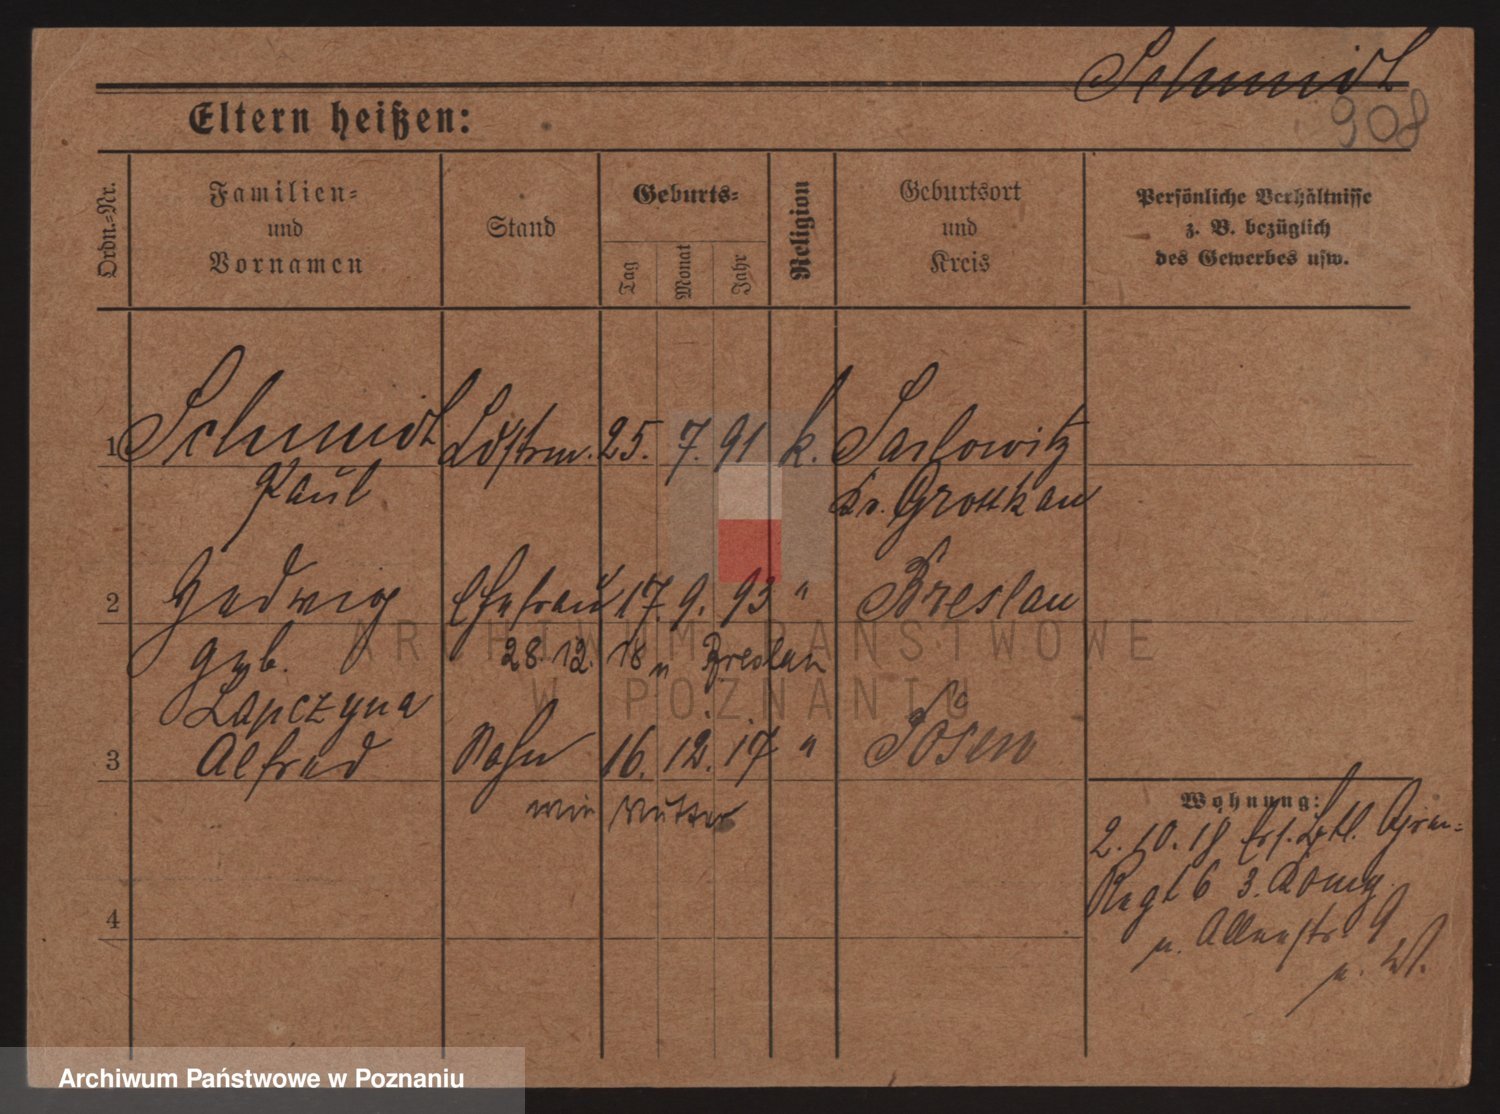 Schmidt
908
Eltern heißen:
Ordn.-Nr.
Familien-
und
Vornamen
Stand
Geburts-
Tag
Monat
Jahr
Religion
Geburtsort
und
Kreis
Persönliche Verhältnisse
z. B. bezüglich
des Gewerbes usw.
1 Schmidt Ldstrm. 25. 7. 91 k. Sarlowitz
Paul Kr. Grottkau
2 Hedwig Ehefrau 17. 9. 93 " Breslau
geb. 28. 12. 18 n Breslau
Lapczyna
3 Alfred Sohn 16. 12. 17 " Posen
wie Mutter
Wohnung:
2. 10. 18 Ers. Gren-
Regt 6 3. Komp.
n. 9
n.
4
ARCHIWUM PAŃSTWOWE
W POZNANIU
Archiwum Państwowe w Poznaniu